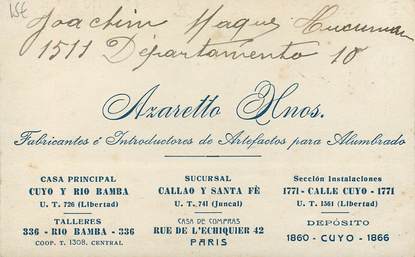 15€
Joachim Maque Tucuman
1511 Département 10
Azaretto Hnos.
Fabricantes é Introductores de Artefactos para Alumbrado
CASA PRINCIPAL
CUYO Y RIO BAMBA
U. T. 726 (Libertad)
TALLERES
336 - RIO BAMBA - 336
COOP. T. 1308, CENTRAL
SUCURSAL
CALLAO Y SANTA FÉ
U. T., 741 (Juncal)
CASA DE COMPRAS
RUE DE L'ECHIQUIER 42
PARIS
Sección Instalaciones
1771 - CALLE CUYO - 1771
U. T. 1561 (Libertad)
DEPÓSITO
1860 - CUYO - 1866